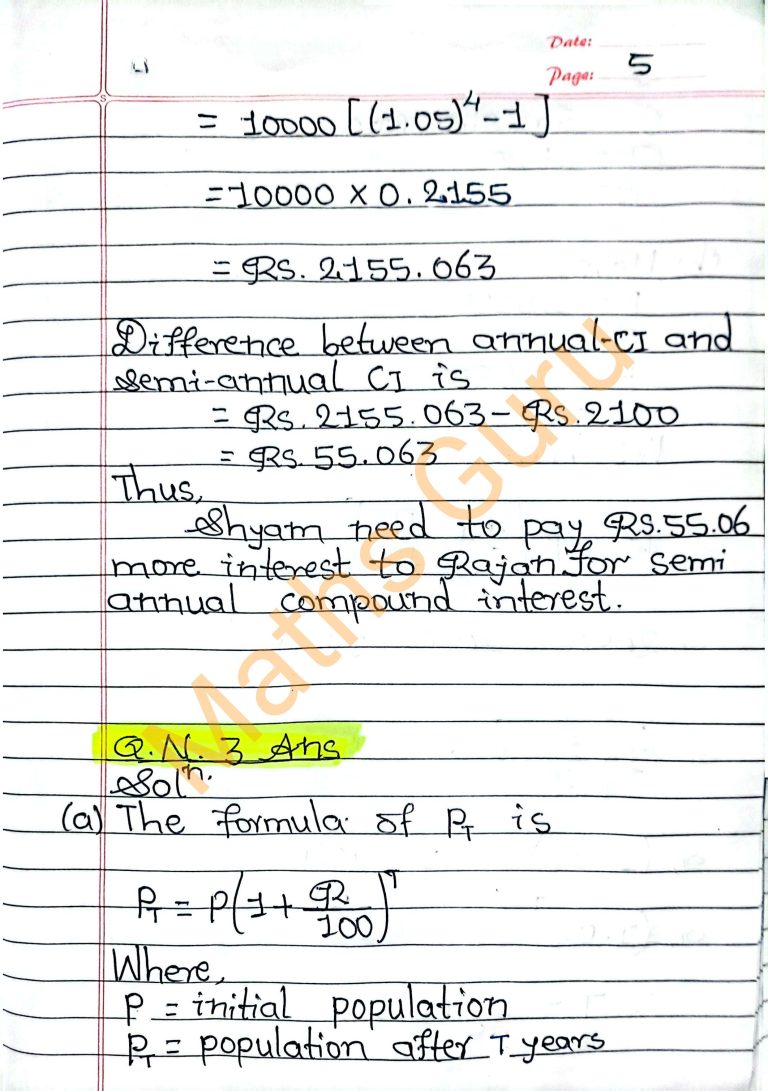 Date:
Page: 5
= 10000 [(1.05)⁴ - 1]
= 10000 × 0.2155
= Rs. 2155.063
Difference between annual-CI and
semi-annual CI is
= Rs. 2155.063 - Rs. 2100
= Rs. 55.063
Thus,
Shyam need to pay Rs. 55.06
more interest to Rajan for semi
annual compound interest.
Q.N. 3 Ans
Solⁿ.
(a) The formula of P_T is
P_T = P(1 + R/100)^T
Where,
P = initial population
P_T = population after T years
Maths Guru